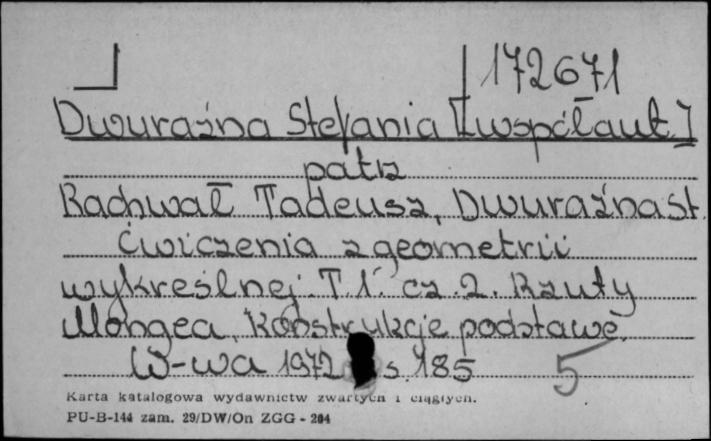 172671
Dwuraźna Stefania [współaut.]
patrz
Rachwał Tadeusz, Dwuraźna St.
Ćwiczenia z geometrii
wykreślnej T. 1. cz. 2. Rzuty
Mongea, Konstrukcje podstawe.
W-wa 1972 s. 185
5
Karta katalogowa wydawnictw zwartych i ciągłych.
PU-B-144 zam. 29/DW/On ZGG - 204